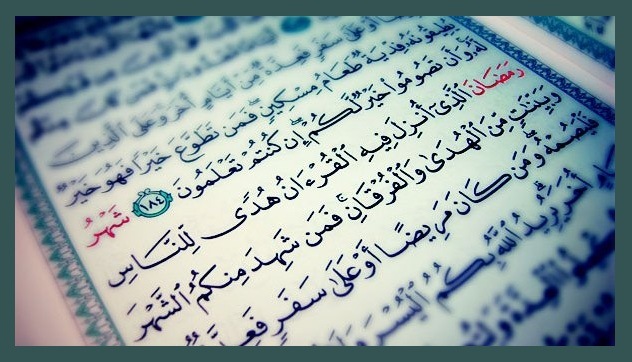 عَلَىٰ سَفَرٍ فَعِدَّةٌ مِّنْ أَيَّامٍ أُخَرَ وَعَلَى ٱلَّذِينَ
يُطِيقُونَهُۥ فِدْيَةٌ طَعَامُ مِسْكِينٍ فَمَن تَطَوَّعَ خَيْرًا فَهُوَ خَيْرٌ
لَّهُۥ وَأَن تَصُومُوا۟ خَيْرٌ لَّكُمْ إِن كُنتُمْ تَعْلَمُونَ ١٨٤ شَهْرُ
رَمَضَانَ ٱلَّذِىٓ أُنزِلَ فِيهِ ٱلْقُرْءَانُ هُدًى لِّلنَّاسِ
وَبَيِّنَٰتٍ مِّنَ ٱلْهُدَىٰ وَٱلْفُرْقَانِ ۚ فَمَن شَهِدَ مِنكُمُ ٱلشَّهْرَ
فَلْيَصُمْهُ ۖ وَمَن كَانَ مَرِيضًا أَوْ عَلَىٰ سَفَرٍ فَعِدَّةٌ
أُخَرَ ۗ يُرِيدُ ٱللَّهُ بِكُمُ ٱلْيُسْرَ وَلَا